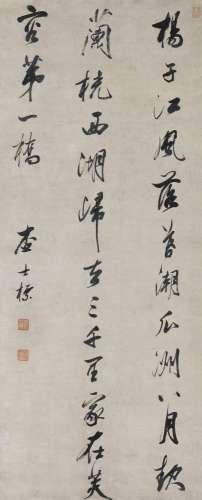 楊子江風落暮潮瓜洲八月放
蘭橈西湖歸去三千里家在芙
容第一橋 查士標